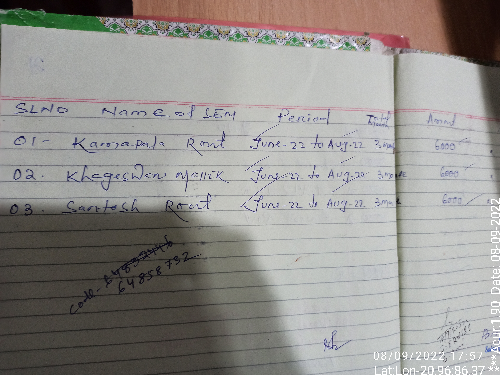 SLNO Name of SEM Period Total Amount
01- Kamapala Rout June-22 to Aug-22 3 6000
02. Khageswar Mallik June-22 to Aug-22 3 6000
03. Santosh Rout June 22 to Aug-22 3 6000
code-
64858792
08/09/2022 17:57
Lat:Lon-20.96:86.37
***Apur 1.90 Date 08-09-2022